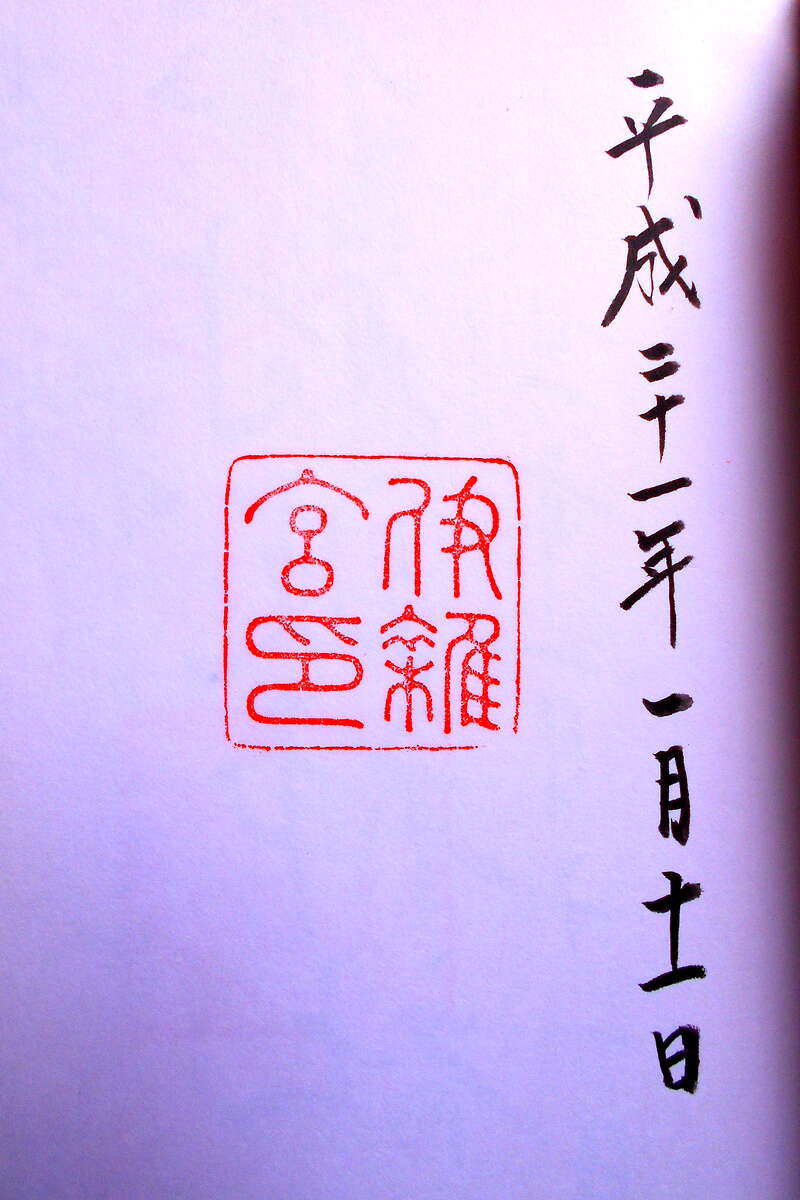 平成二十一年一月十一日
伊雜
宮印